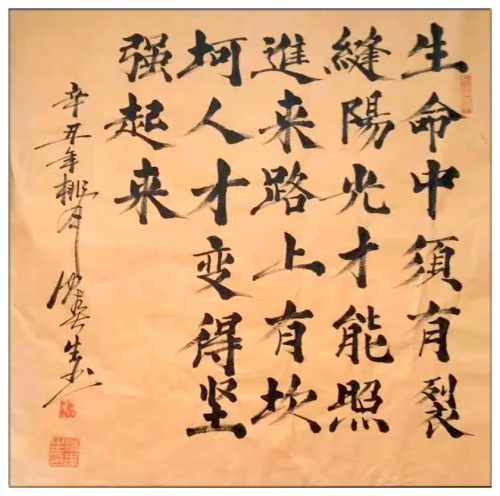 生命中須有裂
縫陽光才能照
進来路上有坎
坷人才变得坚
强起来
辛丑年桃月